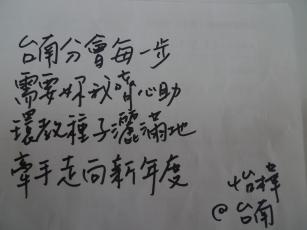 台南分會每一步
需要妳我齊心助
環教種子灑滿地
牽手走向新年度
怡樺
@台南